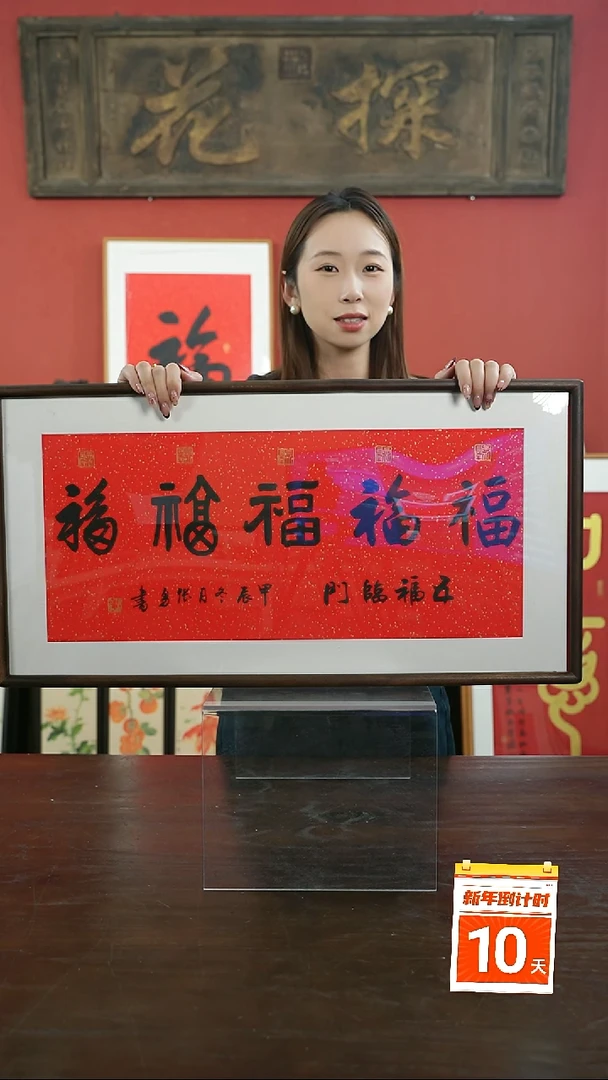 探花
福
福福福福福
五福臨門 甲辰冬月張書
新年倒计时
10天